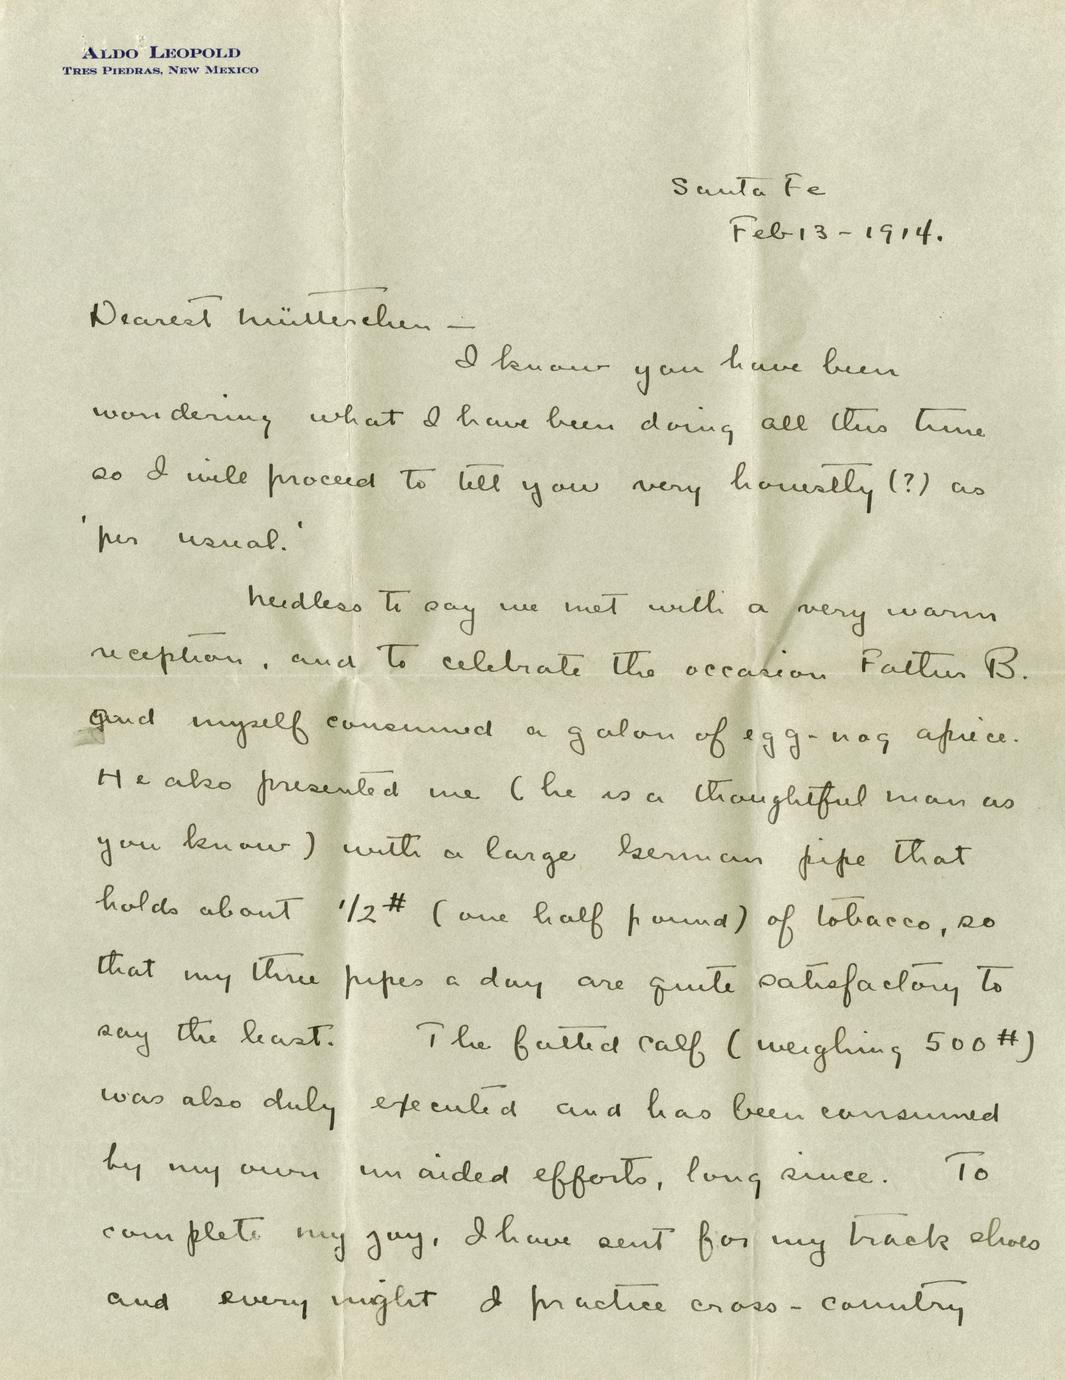 ALDO LEOPOLD
TRES PIEDRAS, NEW MEXICO
Santa Fe
Feb 13 - 1914.
Dearest Mütterchen —
I know you have been
wondering what I have been doing all this time
so I will proceed to tell you very honestly (?) as
'per usual.'
Needless to say we met with a very warm
reception, and to celebrate the occasion Father B.
and myself consumed a galon of egg-nog apiece.
He also presented me (he is a thoughtful man as
you know) with a large German pipe that
holds about 1/2 # (one half pound) of tobacco, so
that my three pipes a day are quite satisfactory to
say the least. The fatted calf (weighing 500 #)
was also duly executed and has been consumed
by my own unaided efforts, long since. To
complete my joy, I have sent for my track shoes
and every night I practice cross-country